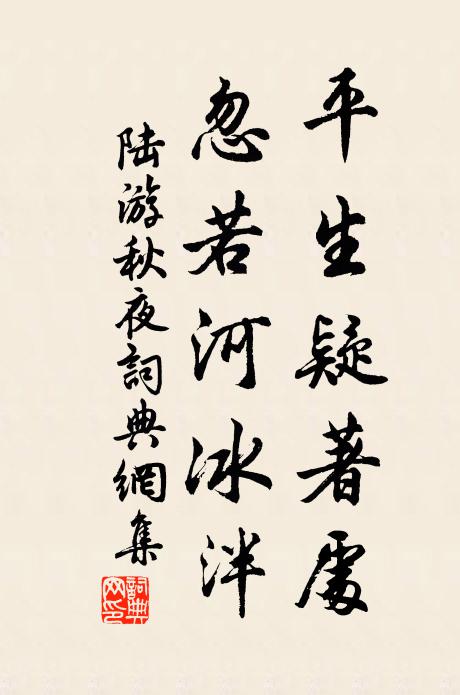 平生疑著處
忽若河冰泮
陆游秋夜詞典網集
詞典網印